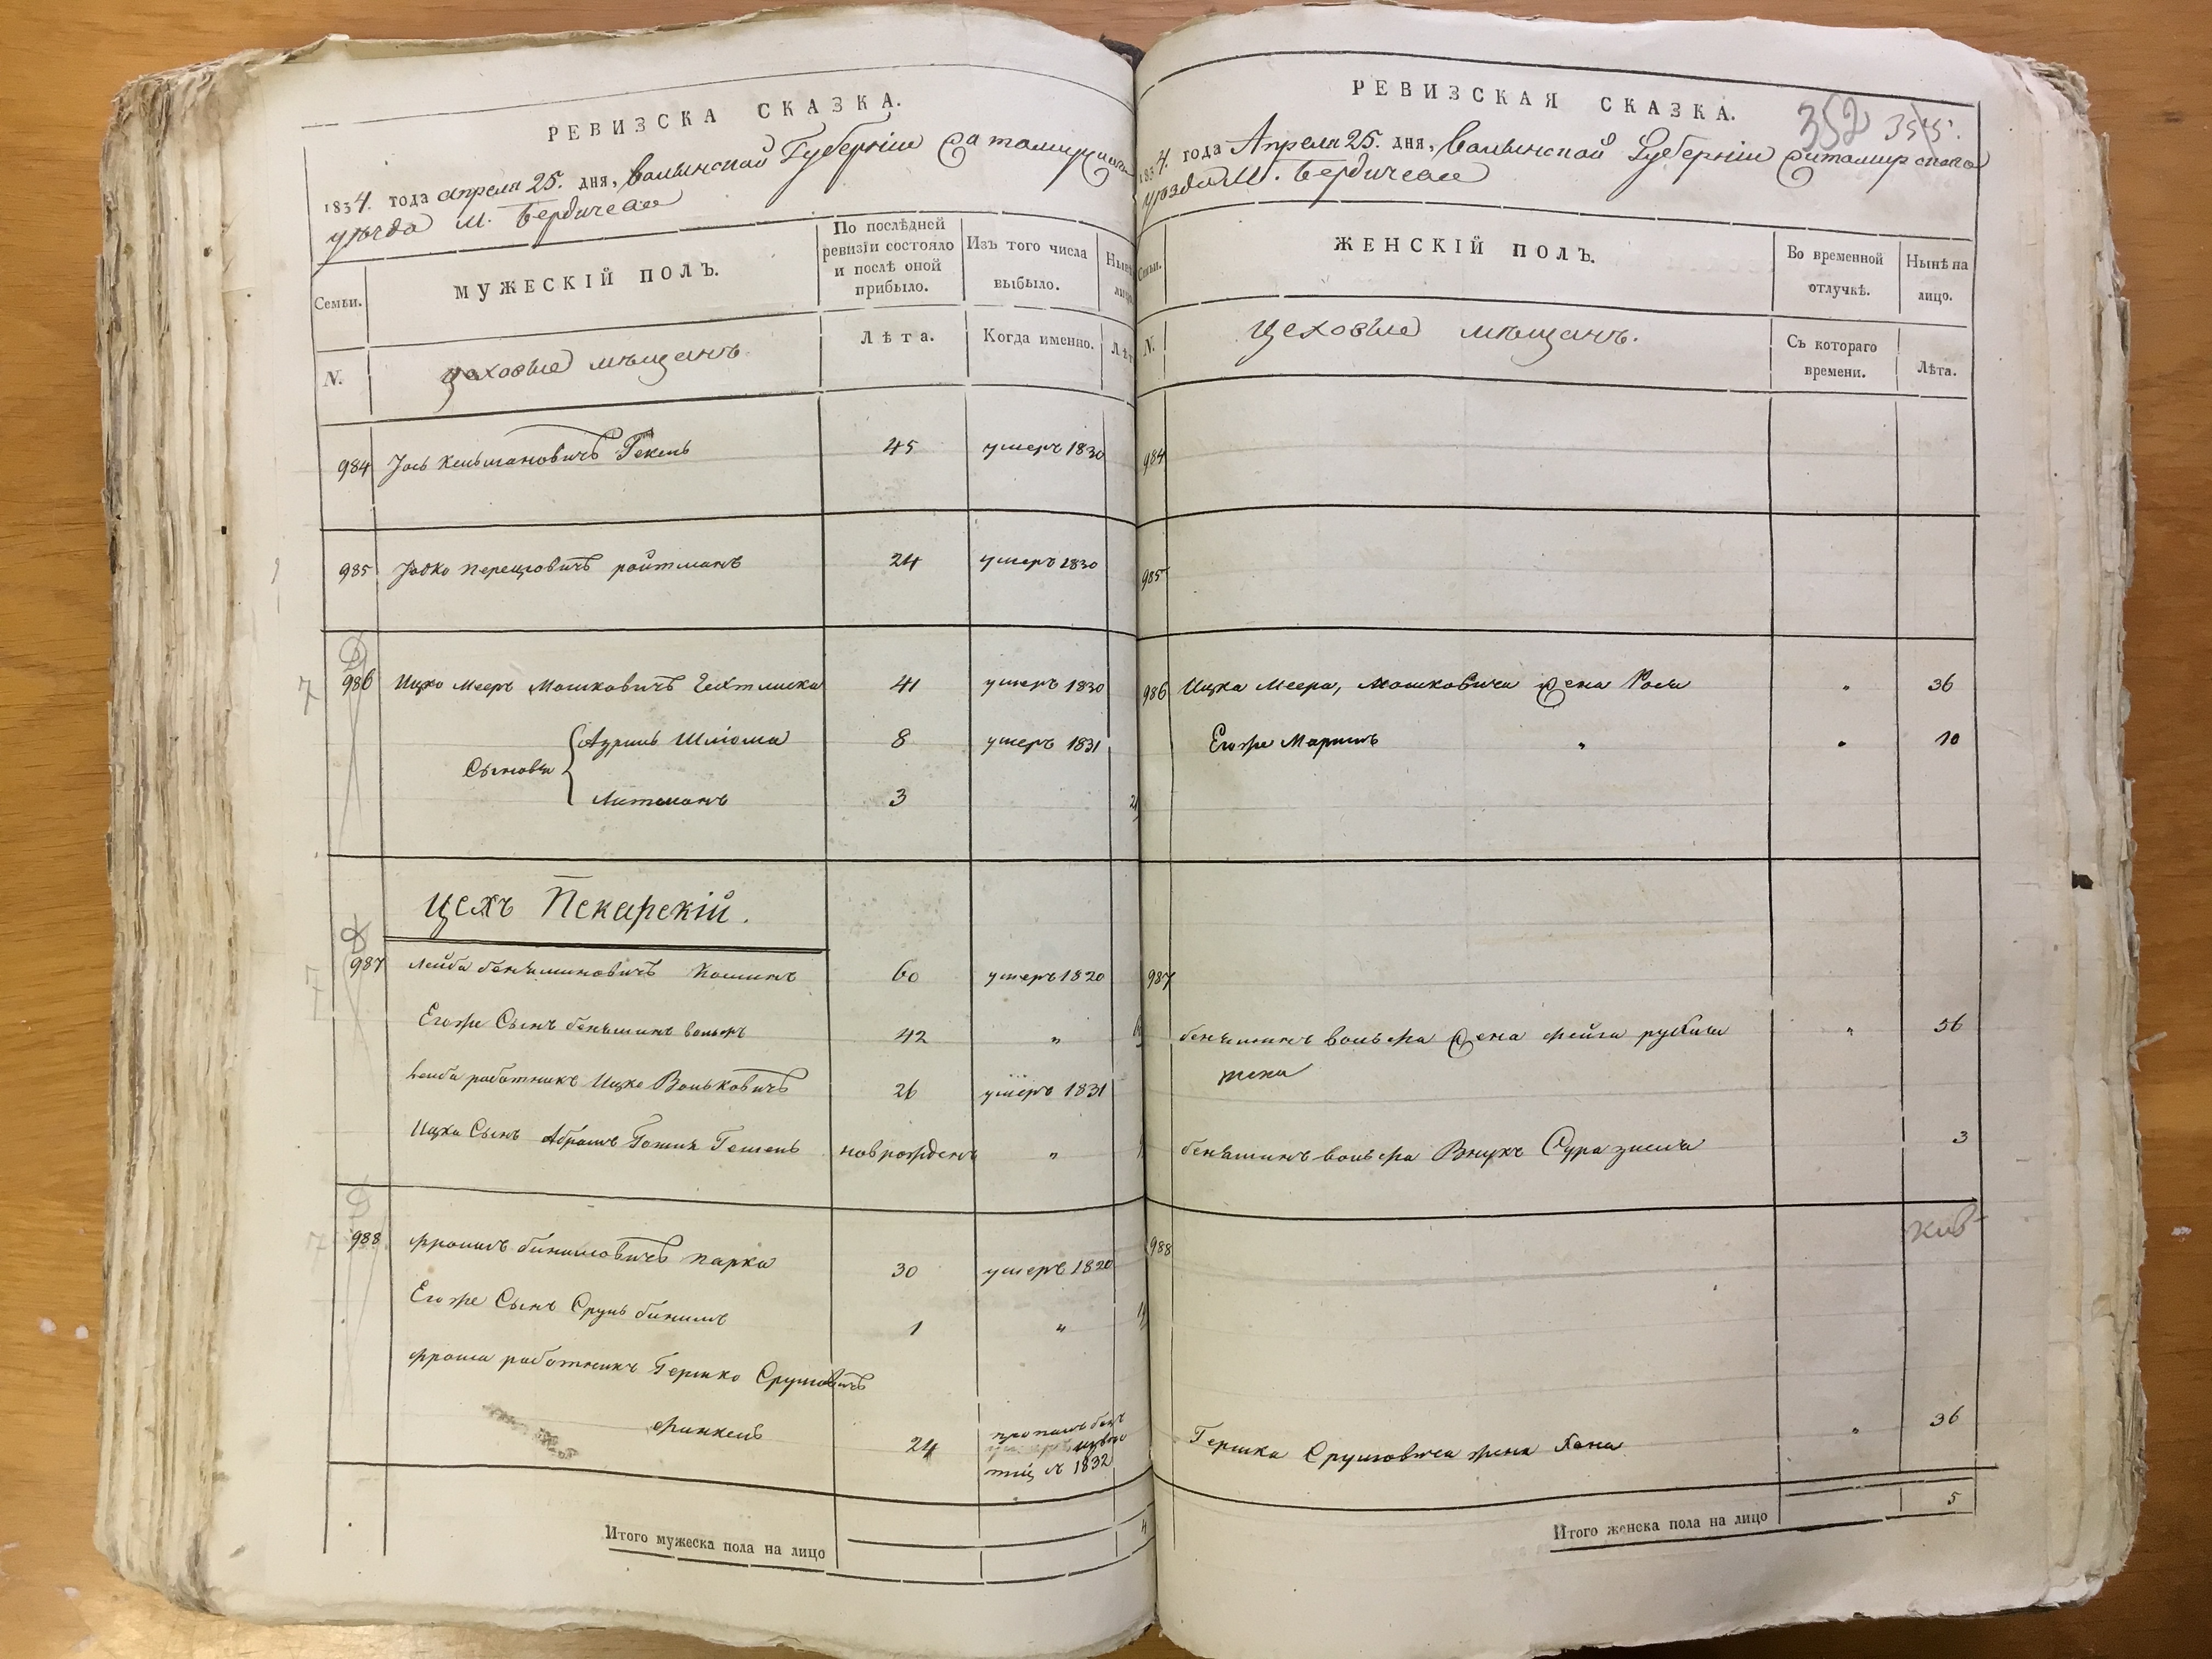 РЕВИЗСКА СКАЗКА.
1834. года апреля 25. дня, Волынской Губернiи Житомирскаго
уѣзда М. Бердичева
Семьи.
МУЖЕСКІЙ ПОЛЪ.
По послѣдней
ревизіи состояло
и послѣ оной
прибыло.
Изъ того числа
выбыло.
N.
цеховые мѣщанъ.
Лѣта.
Когда именно.
984 Іось Кельмановичъ 45 умеръ 1830
985 Іовко Перецовичъ ройтманъ 24 умеръ 1830
986 Ицко Мееръ Мошковичъ 41 умеръ 1830
Сыновья
Азриль Шліома 8 умеръ 1831
Литманъ 3
цехъ Пекарскiй.
987 Лейба беняминовичъ 60 умеръ 1820
Егоже Сынъ беняминъ вольфъ 42 "
Лейба работникъ Ицко Вольковичъ 26 умеръ 1831
Ицка Сынъ Абрамъ новорожденъ "
988 фроимъ парка 30 умеръ 1820
Егоже Сынъ Сруль 1 "
фроима работникъ Гершко Срулiовичъ
финкель 24
1832
Итого мужеска пола на лицо
4
РЕВИЗСКАЯ СКАЗКА.
352 355.
1834 года Апреля 25. дня, Волынской Губернiи Житомирскаго
уѣзда М. Бердичева
Семьи.
ЖЕНСКІЙ ПОЛЪ.
Во временной
отлучкѣ.
Нынѣ на
лицо.
N.
Цеховые мѣщанъ.
Съ котораго
времени.
Лѣта.
984
985
986 Ицка Меера, Мошковича жена Рося " 36
Егоже Мариль " " 10
987
бенямина вольфа жена фейга " 56
бенямина вольфа Внукъ Сура 3
988
Гершка Срулiовича жена Хана " 36
Итого женска пола на лицо
5